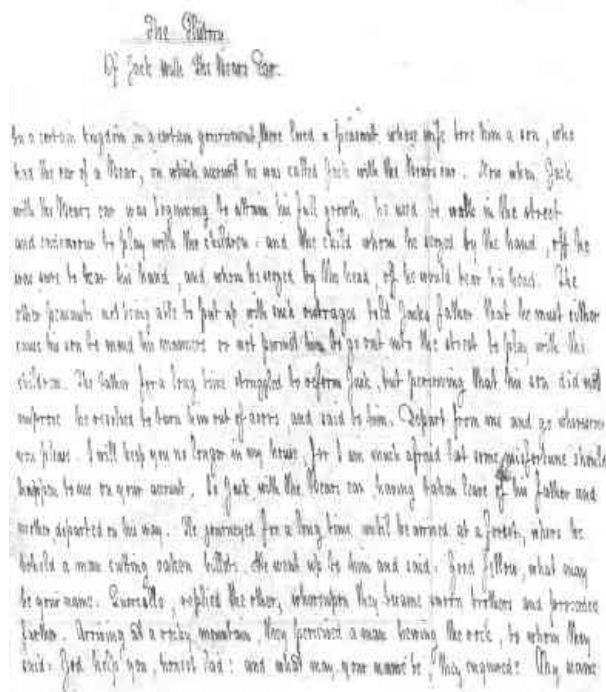 The History
Of Jack with the Bears Ear.
In a certain kingdom in a certain government, there lived a peasant whose wife bore him a son, who
had the ear of a Bear, on which account he was called Jack with the Bears ear. Now when Jack
with the Bears ear was beginning to attain his full growth he used to walk in the street
and endeavour to play with the children: and the child whom he seized by the hand, off he
was sure to tear his hand, and whom he seized by the head, off he would tear his head. The
other peasants not being able to put up with such outrages told Jacks father that he must either
cause his son to mend his manners or not permit him to go out into the street to play with the
children. The father for a long time struggled to reform Jack, but perceiving that his son did not
improve he resolved to turn him out of doors and said to him. Depart from me and go wheresoever
you please. I will keep you no longer in my house, for I am much afraid lest some misfortune should
happen to me on your account. So Jack with the Bears ear, having taken leave of his father and
mother departed on his way. He journeyed for a long time until he arrived at a forest, where he
beheld a man cutting oaken billets. He went up to him and said. Good fellow, what may
be your name. Quercillo, replied the other, whereupon they became sworn brothers and proceeded
further. Arriving at a rocky mountain, they perceived a man hewing the rock, to whom they
said: God help you, honest lad: and what may your name be, they enquired? My name